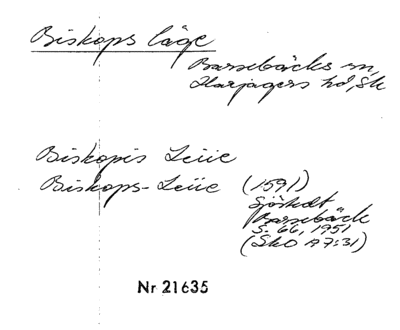 Biskops läge
Barsebäcks sn,
Harjagers hd, Sk
Biskopis Leüe
Biskops-Leüe (1591)
Sjöstedt
Barsebäck
S. 66, 1951
(SkO A7:31)
Nr 21635